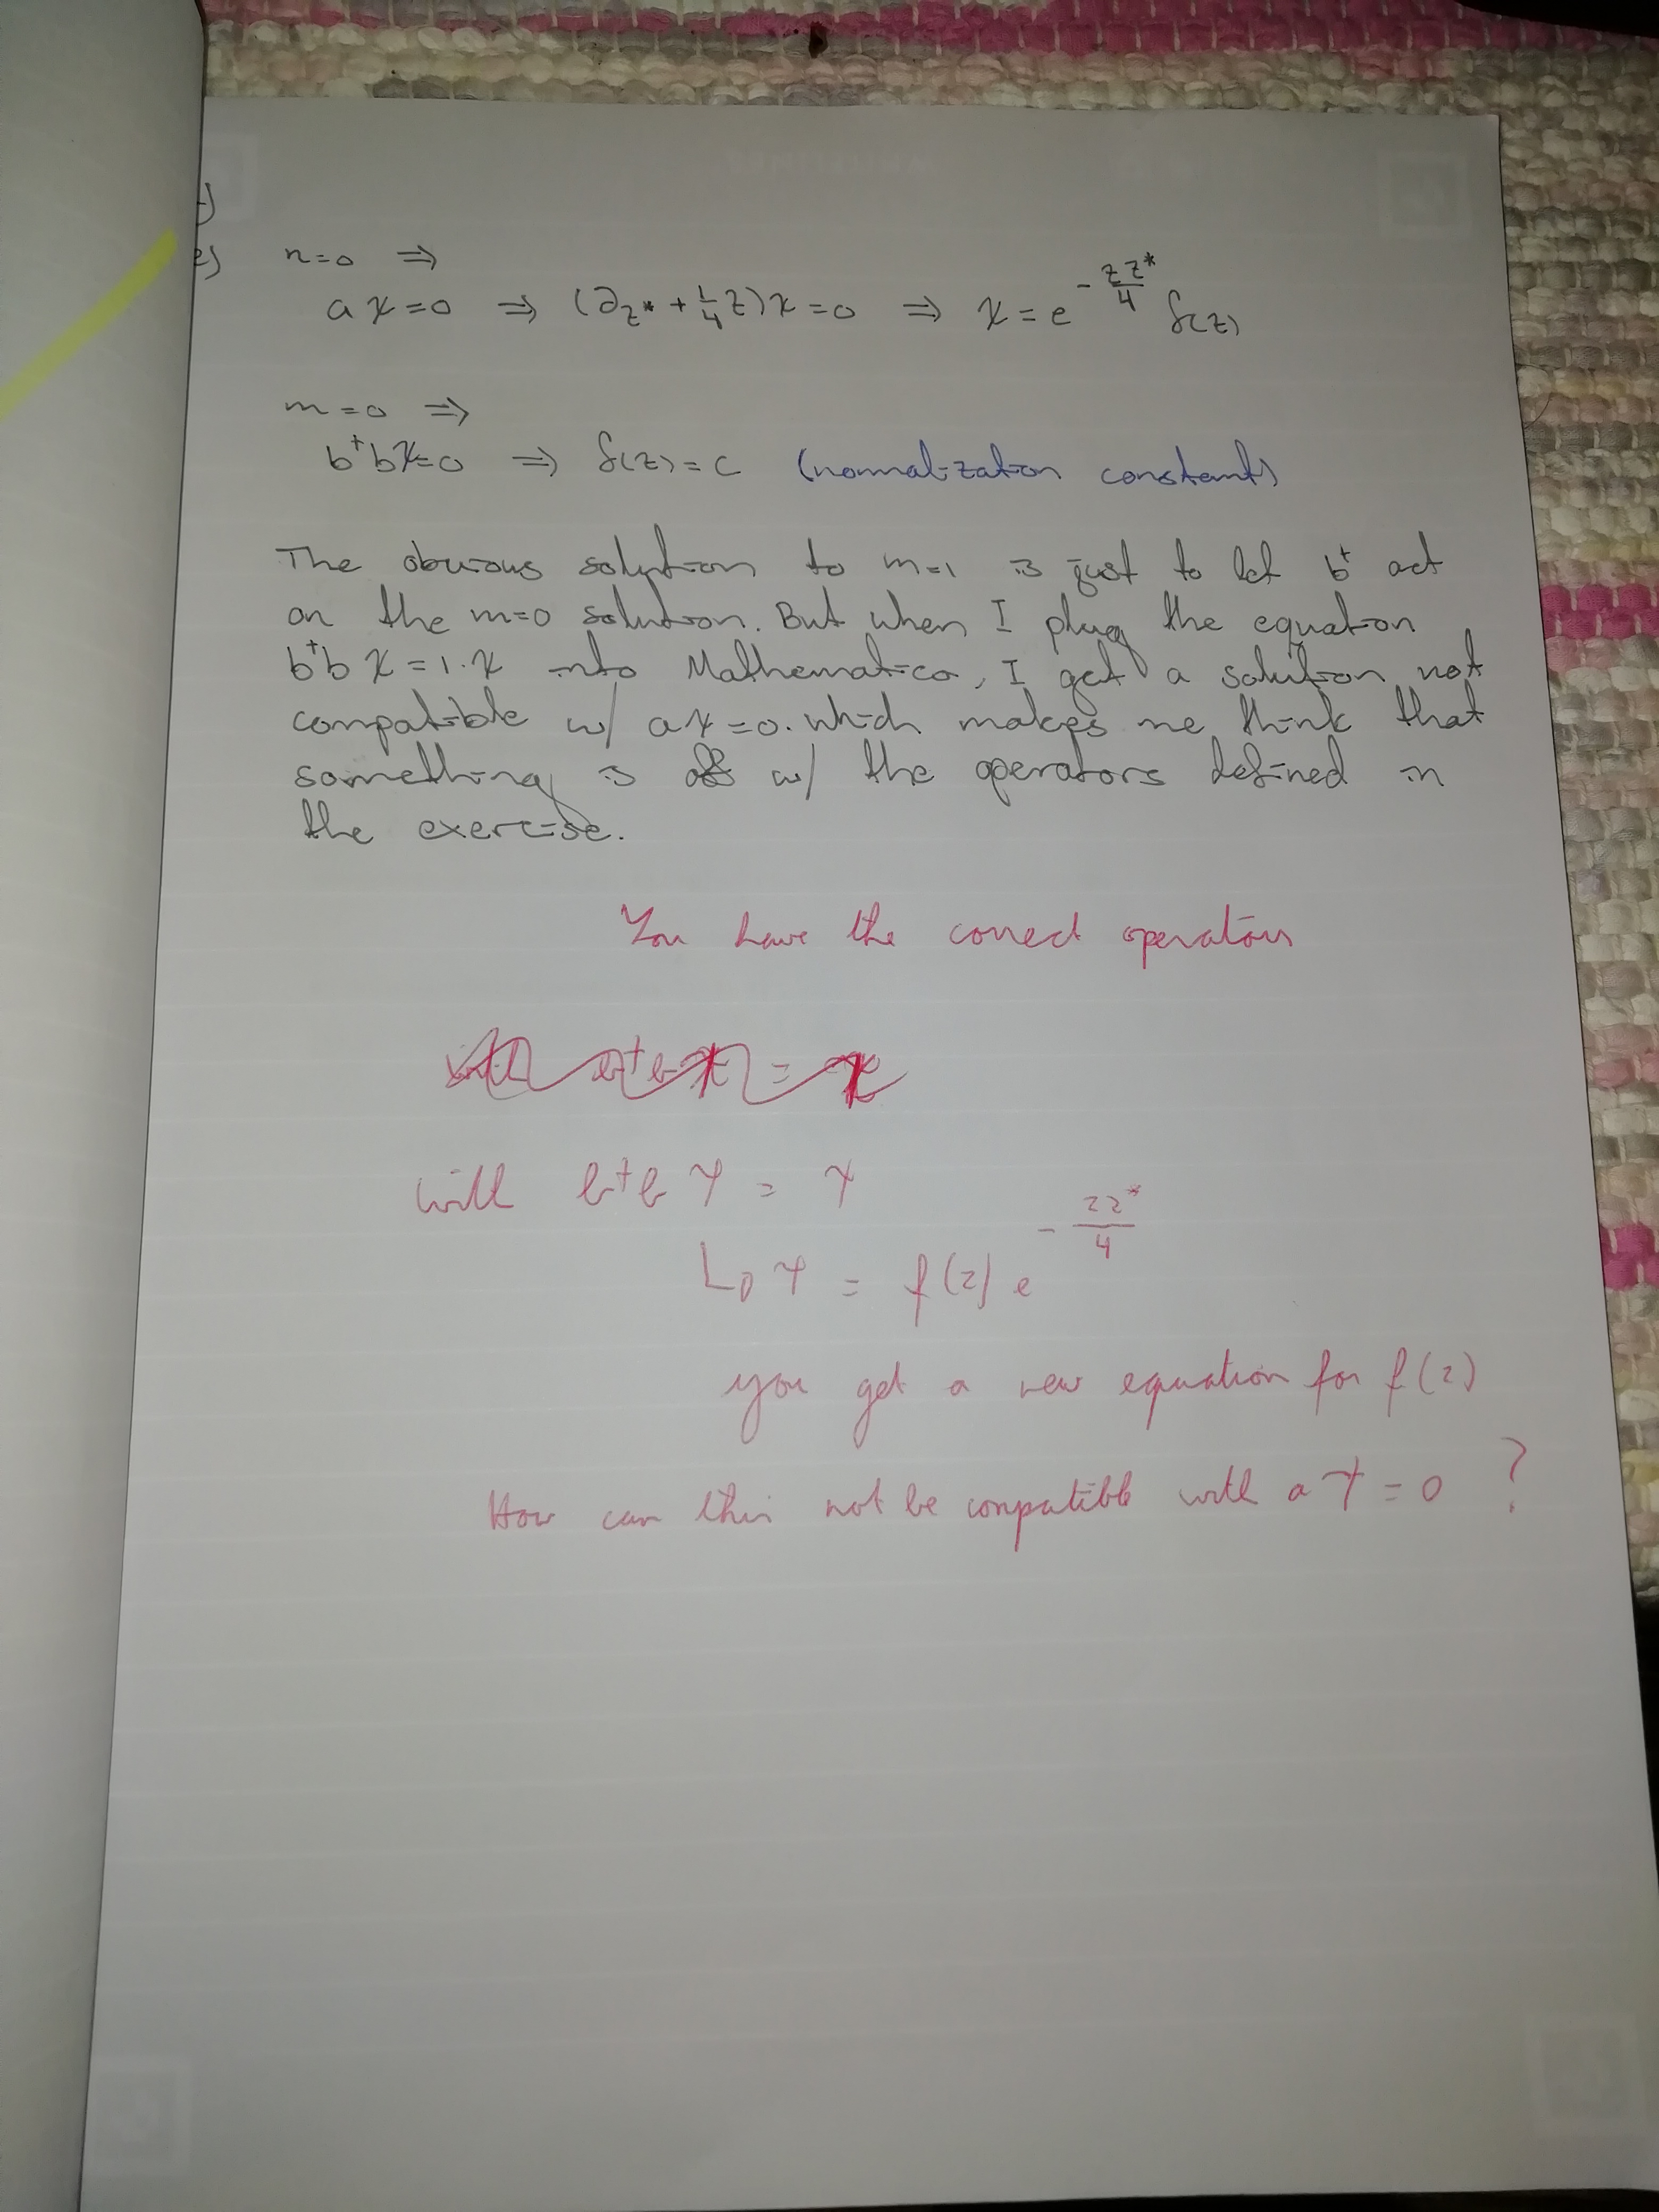 e) n=0 ⇒
aχ=0 ⇒ (∂z* + 1/4 z)χ=0 ⇒ χ = e^(-zz*/4) f(z)
m=0 ⇒
b†bχ=0 ⇒ f(z)=c (normalization constant)
The obvious solution to m=1 is just to let b† act
on the m=0 solution. But when I plug the equation
b†b χ = 1·χ into Mathematica, I get a solution not
compatible w/ aχ=0. which makes me think that
something is off w/ the operators defined in
the exercise.
You have the correct operators
b†bχ = χ
with b†b Ψ = Ψ
L▷ Ψ = f(z) e^(-zz*/4)
you get a new equation for f(z)
How can this not be compatible with a Ψ = 0 ?